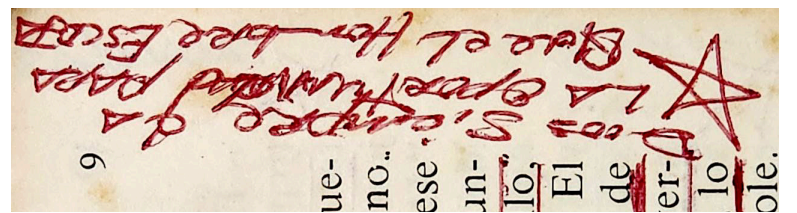 Dios Siempre da
LA oportunidad PARA
Que el Hombre Escoja
ue-
no.
ese
un-
lo,
El
de
er-
lo
ole.